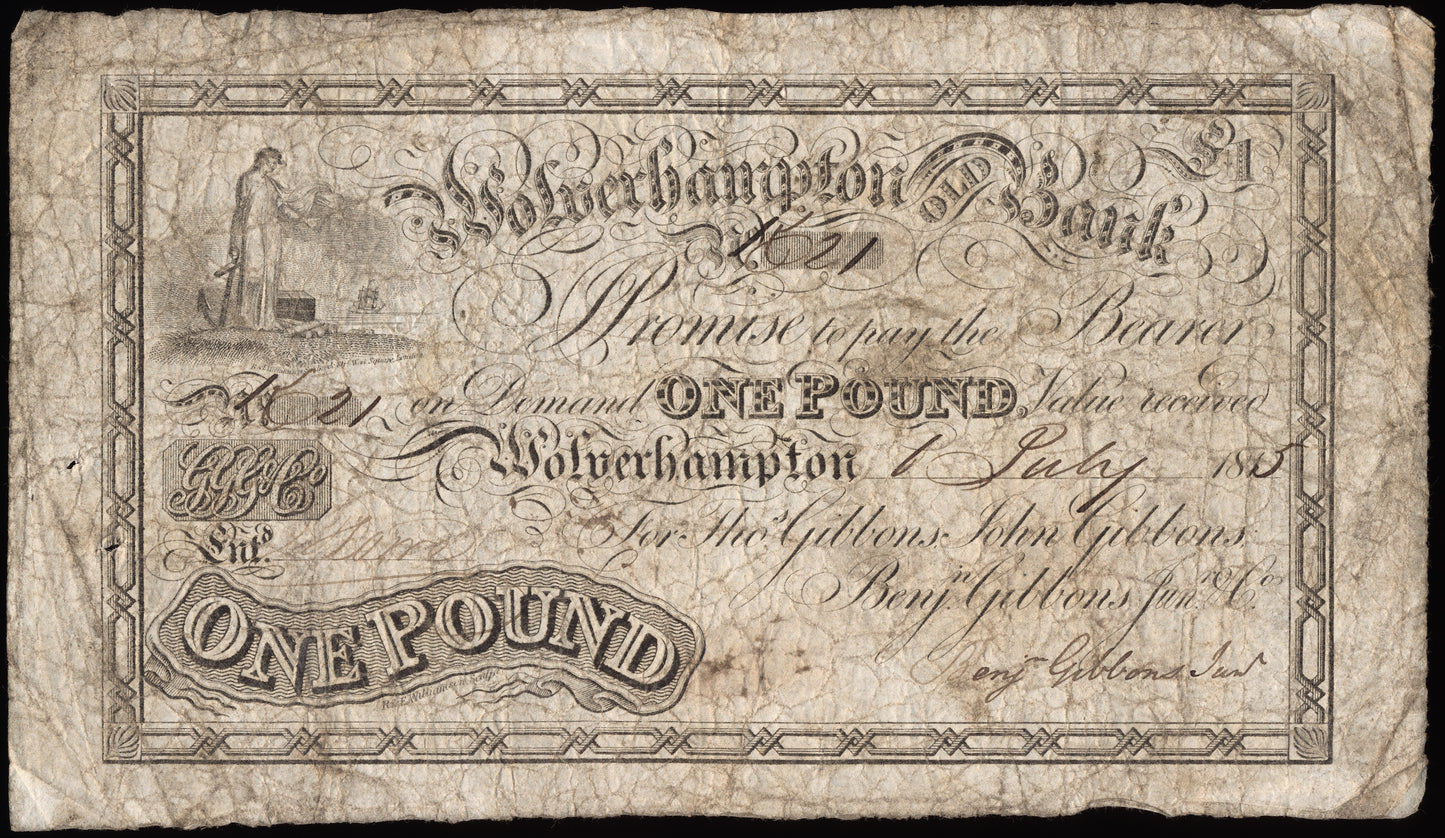 Wolverhampton OLD Bank £1
No. 21
I Promise to pay the Bearer
No. 21 on Demand ONE POUND. Value received
Wolverhampton 1 July 1815
GGG&Co
Entd.
For Thos. Gibbons, John Gibbons,
Benjn. Gibbons Junr. & Co.
ONE POUND
Benjn Gibbons Junr